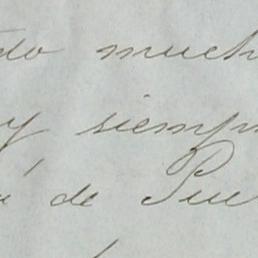 do much
y siemp
de Pue